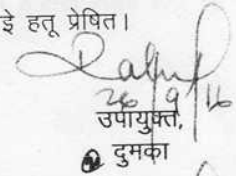 इे हतू प्रेषित।
26/9/16
उपायुक्त,
दुमका